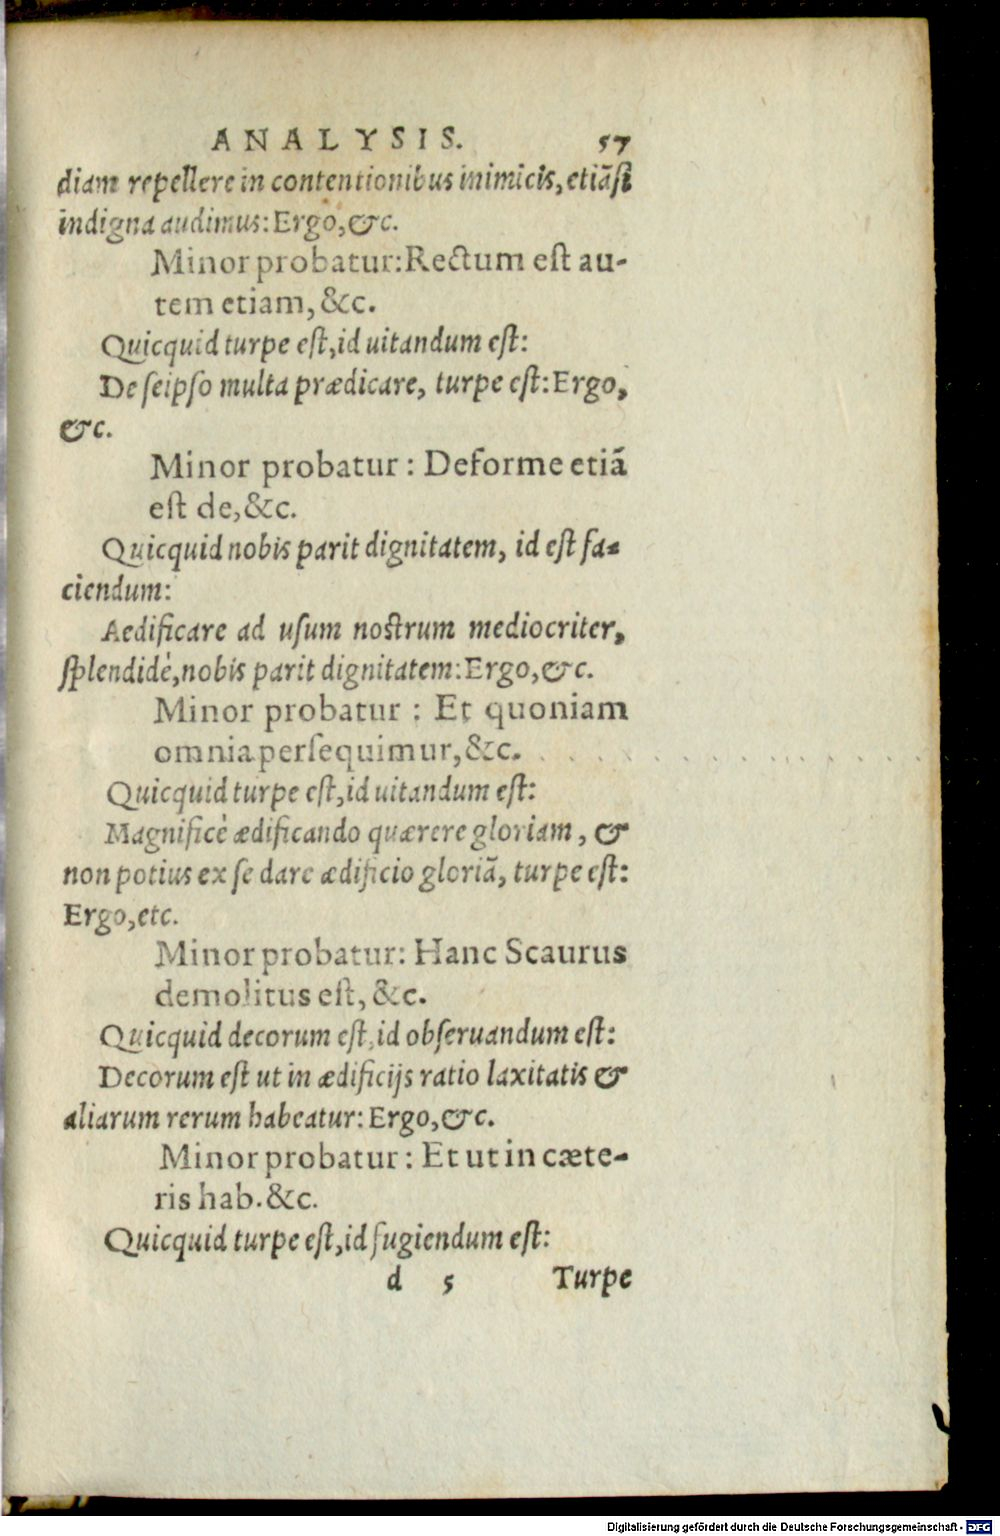 ANALYSIS. 57
diam repellere in contentionibus inimicis, etiāſi
indigna audimus: Ergo, &c.
Minor probatur: Rectum eſt au-
tem etiam, &c.
Quicquid turpe eſt, id uitandum eſt:
De ſeipſo multa prædicare, turpe eſt: Ergo,
&c.
Minor probatur: Deforme etiā
eſt de, &c.
Quicquid nobis parit dignitatem, id eſt fa-
ciendum:
Aedificare ad uſum noſtrum mediocriter,
ſplendidè, nobis parit dignitatem: Ergo, &c.
Minor probatur: Et quoniam
omnia perſequimur, &c.
Quicquid turpe eſt, id uitandum eſt:
Magnificè ædificando quærere gloriam, &
non potius ex ſe dare ædificio gloriā, turpe eſt:
Ergo, etc.
Minor probatur: Hanc Scaurus
demolitus eſt, &c.
Quicquid decorum eſt, id obſeruandum eſt:
Decorum eſt ut in ædificijs ratio laxitatis &
aliarum rerum habeatur: Ergo, &c.
Minor probatur: Et ut in cæte-
ris hab. &c.
Quicquid turpe eſt, id fugiendum eſt:
d 5 Turpe
Digitalisierung gefördert durch die Deutsche Forschungsgemeinschaft - DFG